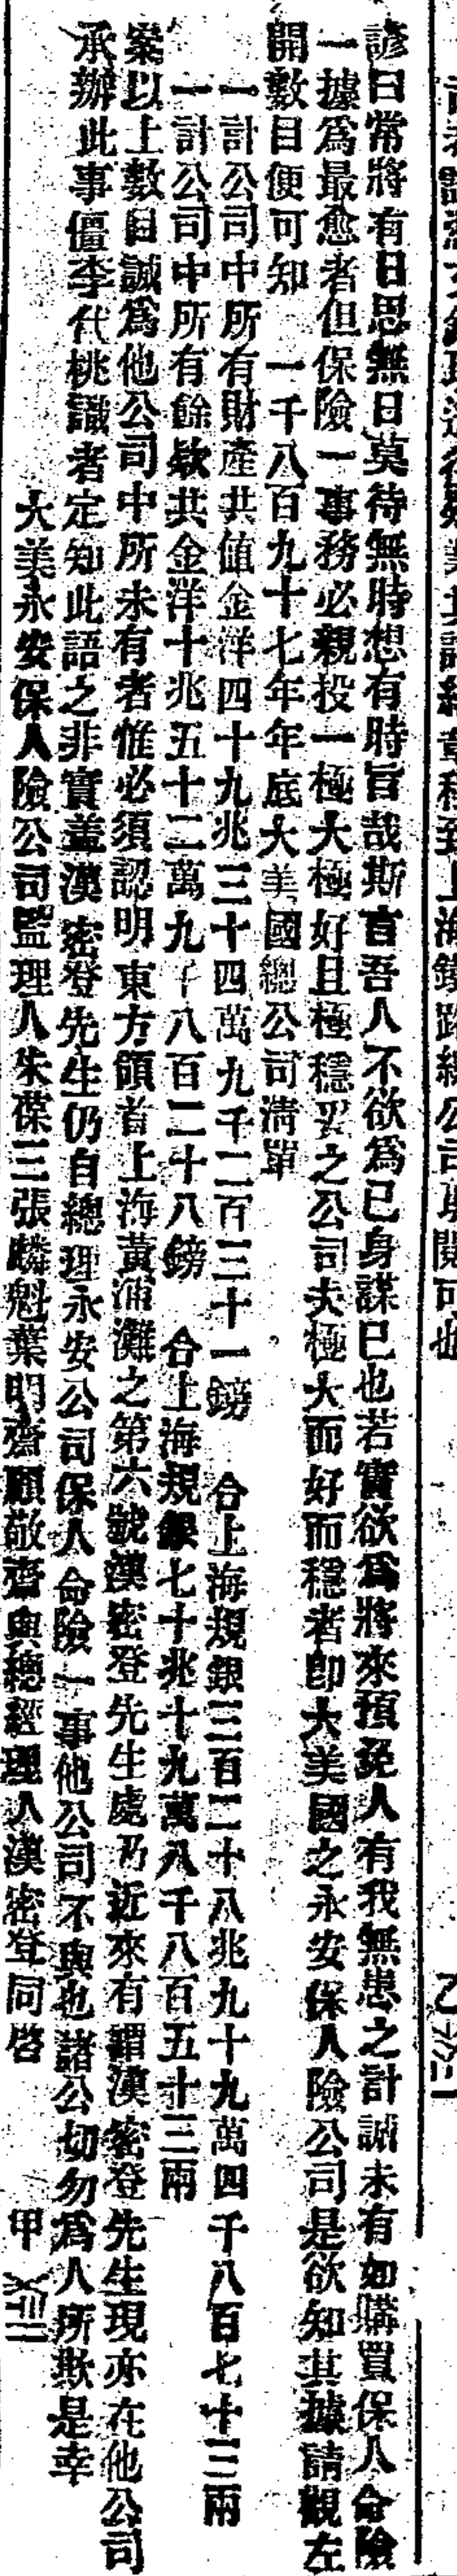 上海鐵路總公司取閱可也
諺曰常將有日思無日莫待無時想有時旨哉斯言吾人不欲為已身謀巳也若實欲為將來預籌人有我無患之計誠未有如購買保人命險
一據為最愈者但保險一事務必親投一極大極好且極穩妥之公司夫極大而好而穩者卽大美國之永安保人險公司是欲知其據請觀左
開數目便可知　一千八百九十七年年底大美國總公司淸單
一計公司中所有財產共値金洋四十九兆三十四萬九千二百三十一鎊　合上海規銀三百二十八兆九十九萬四千八百七十三兩
一計公司中所有餘欵共金洋十兆五十二萬九千八百二十八鎊　合上海規銀七十兆十九萬八千八百五十三兩
案以上數目誠爲他公司中所未有者惟必須認明東方領首上海黃浦灘之第六號漢密登先生處乃近來有謂漢密登先生現亦在他公司
承辦此事僵李代桃識者定知此語之非實蓋漢密登先生仍自總理永安公司保人命險一事他公司不與也諸公切勿爲人所欺是幸
大美永安保人險公司監理人朱葆三張麟魁葉明齋顧敬齋與總經理人漢密登同啓　甲